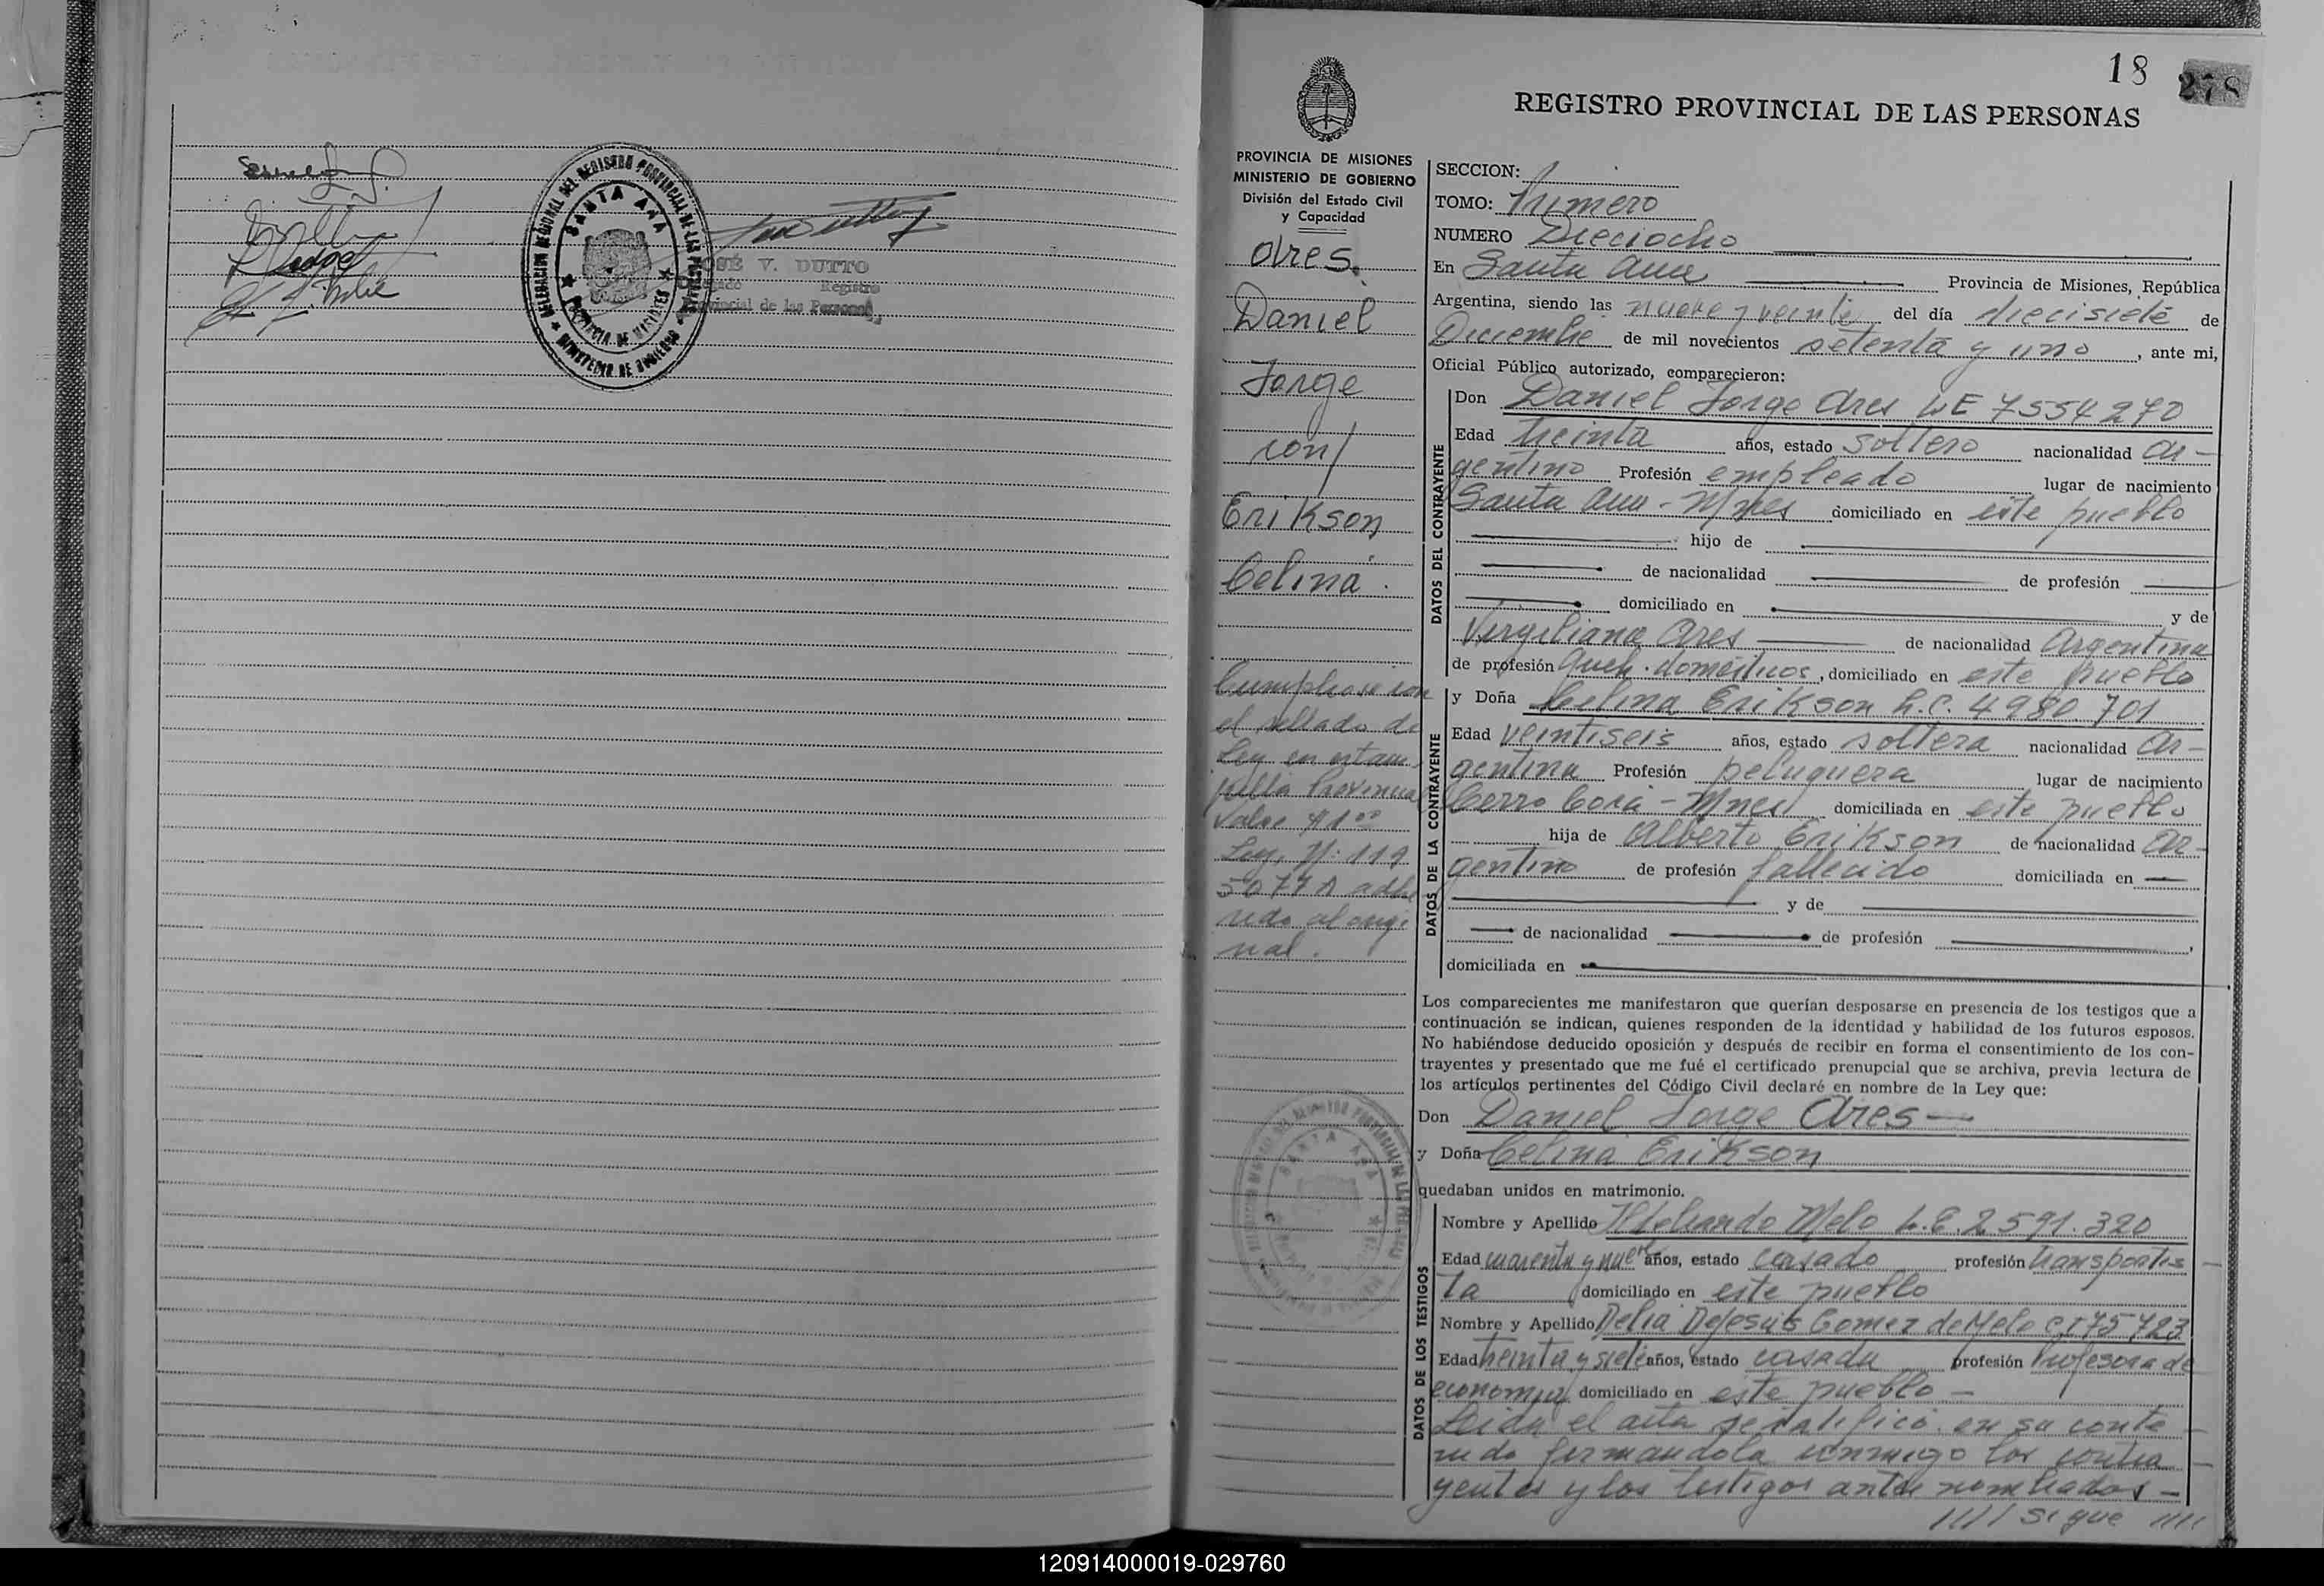 DELEGACION REGIONAL DEL REGISTRO PROVINCIAL DE LAS PERSONAS
SANTA ANA
PROVINCIA DE MISIONES
MINISTERIO DE GOBIERNO
JOSÉ V. DUTTO
Registro
Provincial de las Personas
18 278
REGISTRO PROVINCIAL DE LAS PERSONAS
PROVINCIA DE MISIONES
MINISTERIO DE GOBIERNO
División del Estado Civil
y Capacidad
Ares.
Daniel
Jorge
con/
Erikson
Celina.
Cumplease con
el sellado de
Ley en estam
pilla Provincial
Valor $1.00
Ley, Nº: 119
5077 A adhe
rido al origi
nal.
SECCION:
TOMO: Primero
NUMERO Dieciocho
En Santa Ana Provincia de Misiones, República
Argentina, siendo las nueve y veinte del día diecisiete de
Diciembre de mil novecientos setenta y uno, ante mi,
Oficial Público autorizado, comparecieron:
DATOS DEL CONTRAYENTE
Don Daniel Jorge Ares LE 7554270
Edad treinta años, estado soltero nacionalidad ar-
gentino Profesión empleado lugar de nacimiento
Santa Ana - Mnes domiciliado en este pueblo
hijo de
de nacionalidad de profesión
domiciliado en y de
Virgiliana Ares de nacionalidad Argentina
de profesión Queh. domésticos, domiciliado en este pueblo
DATOS DE LA CONTRAYENTE
y Doña Celina Erikson L.C. 4980701
Edad veintiseis años, estado soltera nacionalidad Ar-
gentina Profesión peluquera lugar de nacimiento
Cerro Corá - Mnes domiciliada en este pueblo
hija de Alberto Erikson de nacionalidad ar-
gentino de profesión fallecido domiciliada en —
y de
de nacionalidad de profesión
domiciliada en
Los comparecientes me manifestaron que querían desposarse en presencia de los testigos que a
continuación se indican, quienes responden de la identidad y habilidad de los futuros esposos.
No habiéndose deducido oposición y después de recibir en forma el consentimiento de los con-
trayentes y presentado que me fué el certificado prenupcial que se archiva, previa lectura de
los artículos pertinentes del Código Civil declaré en nombre de la Ley que:
Don Daniel Jorge Ares —
y Doña Celina Erikson
quedaban unidos en matrimonio.
DATOS DE LOS TESTIGOS
Nombre y Apellido Melo L.E. 2.591.320
Edad cuarenta y nueve años, estado casado profesión transportis
ta domiciliado en este pueblo
Nombre y Apellido Delia DeJesús Gomez de Melo CI 75723
Edad treinta y siete años, estado casada profesión Profesora de
economía domiciliado en este pueblo —
Leida el acta se ratificó en su conte
nido firmandola conmigo los contra
yentes y los testigos antes nombrados —
//// sigue ////
120914000019-029760